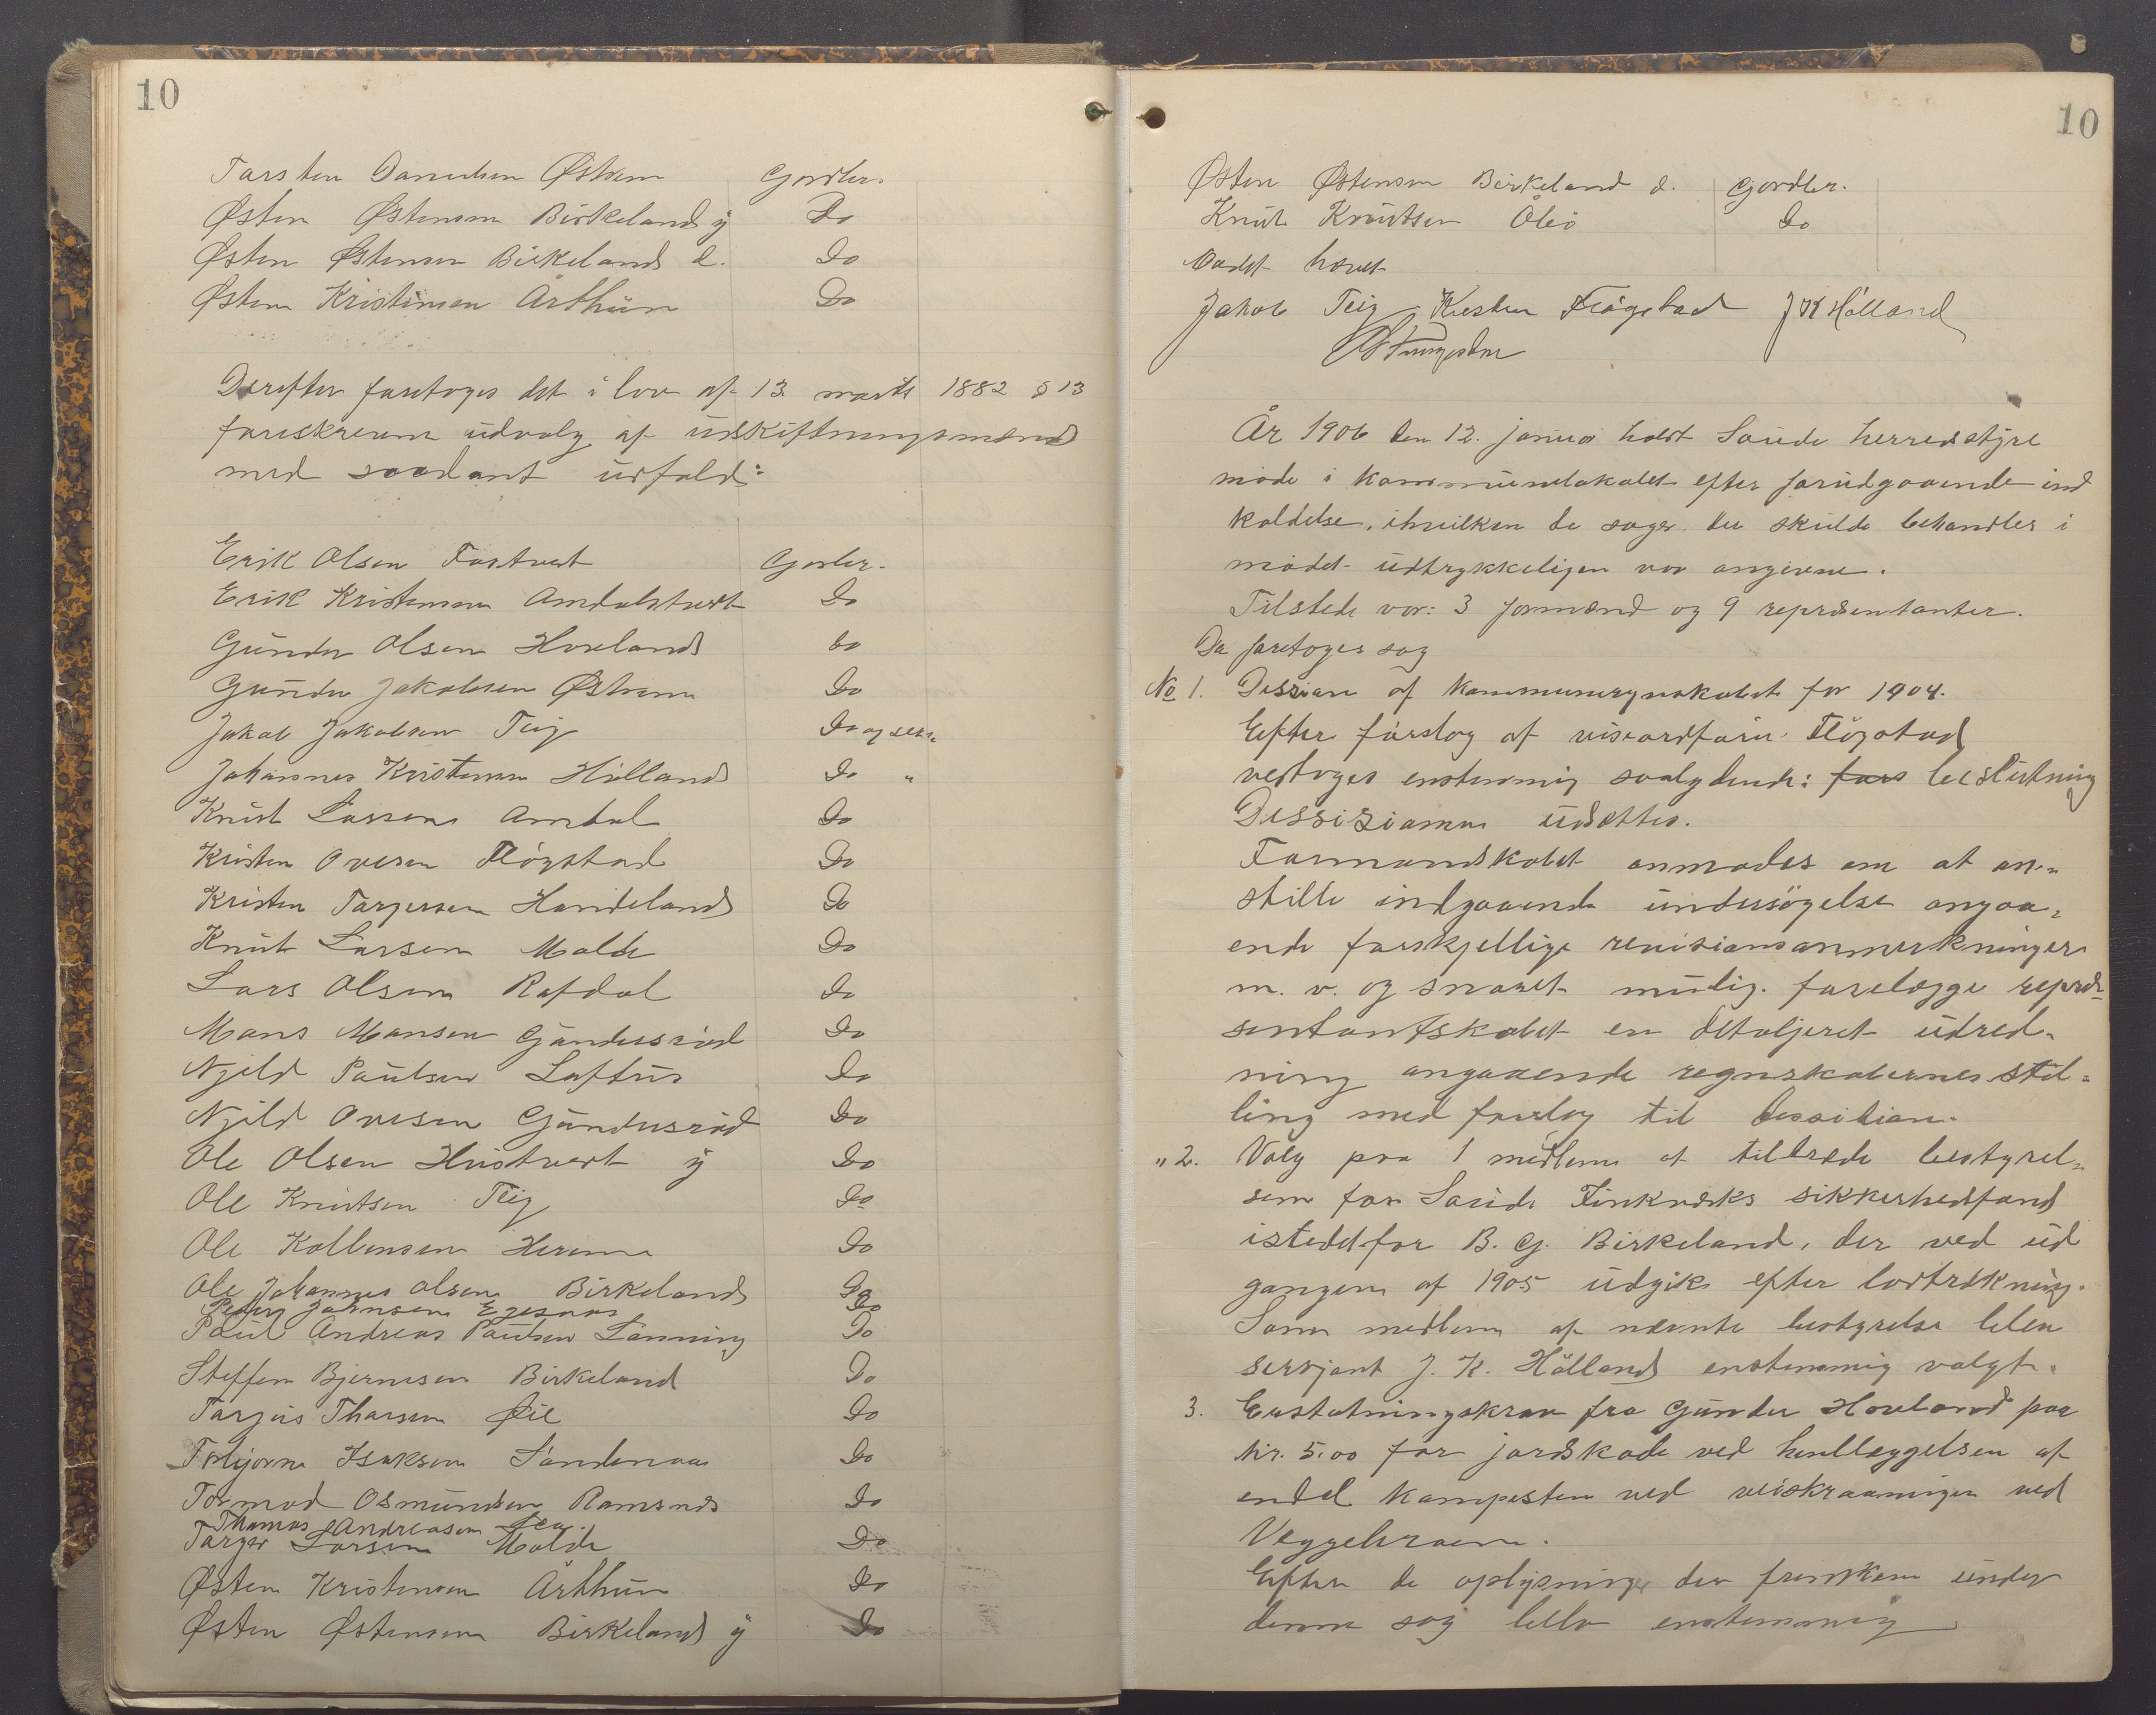 10
Tarsten Danielsen Østrem Gardbr.
Østen Østensen Birkeland y Do
Østen Østensen Birkeland d. Do
Østen Kristensen Årthun Do
Derefter foretoges det i lov af 13 marts 1882 § 13
foreskrevne udvalg af udskiftningsmænd
med saadant udfald:
Erik Olsen Fostveit Gardbr.
Erik Kristensen Amdalstveit Do
Gunder Olsen Hoveland Do
Gunder Jakobsen Østrem Do
Jakob Jakobsen Teig Do og
Johannes Kristensen Hölland Do "
Knut Larsen Amdal Do
Kristen Ovesen Flögstad Do
Kristen Targersen Handeland Do
Knut Larsen Molde Do
Lars Olsen Rafdal Do
Mons Monsen Gundersröd Do
Njeld Paulsen Loftus Do
Njeld Ovesen Gundersröd Do
Ole Olsen Hustveit y Do
Ole Knutsen Teig Do
Ole Kolbensen Herem Do
Ole Johannes Olsen Birkeland Do
Peder Johnsen Do
Paul Andreas Paulsen Lönning Do
Steffen Bjernesen Birkeland Do
Targus Tharsen Øie Do
Torbjørn Isaksen Söndenaa Do
Tormod Osmundsen Ramsnes Do
Thomas Andreasen
Targer Larsen Molde Do
Østen Kristensen Årthun Do
Østen Østensen Birkeland y Do
10
Østen Østensen Birkeland d. Gjordbr.
Knut Knutsen Öleö Do
Mødet hævet
Jakob Teig Kristen Flögstad J K Hölland
År 1906 den 12. januar holdt Saude herredstyre
möde i kommunelokalet efter forudgaaende ind
kaldelse, ihvilken de sager der skulde behandles i
mödet udtrykkeligen var angivne.
Tilstede var: 3 formænd og 9 repræsentanter.
Da foretoges sag
No 1. Dession af kommuneregnskabet for 1904.
Efter forslag af viseordförer Flögstad
vedtoges enstemmig saalydende: fors beslutning
Dessisionen udsættes.
Formandskabet anmodes om at an-
stille indgaaende undersögelse angaa-
ende forskjellige revisionsanmerkninger
m. v. og snarest mulig forelægge repræ-
sentantskabet en detaljeret udred-
ning angaaende regnskabernes stil-
ling med forslag til dessision.
" 2. Valg paa 1 medlem at tiltræde bestyrel-
sen for Saude Zinkværks sikkerhedsfond
istedetfor B. G. Birkeland, der ved ud
gangen af 1905 udgik efter lodtrækning.
Som medlem af nævnte bestyrelse blev
serjant J. K. Hölland enstemmig valgt.
3. Erstatningskrav fra Gunder Hoveland paa
Kr. 5.00 for jordskade ved henlæggelsen af
endel kampesten ved veiskraaningen ved
Veggebraen.
Efter de oplysninger der fremkom under
denne sag blev enstemmig